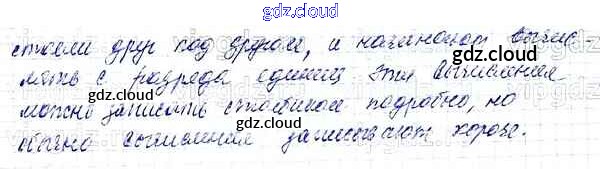 gdz.cloud
стояли друг под другом, и начинают вычис-
мать с разряда единиц Эти вычисления
gdz.cloud gdz.cloud
можно записать столбиком подробно, но
gdz.cloud
обычно вычисления записывают короче.
gdz.cloud